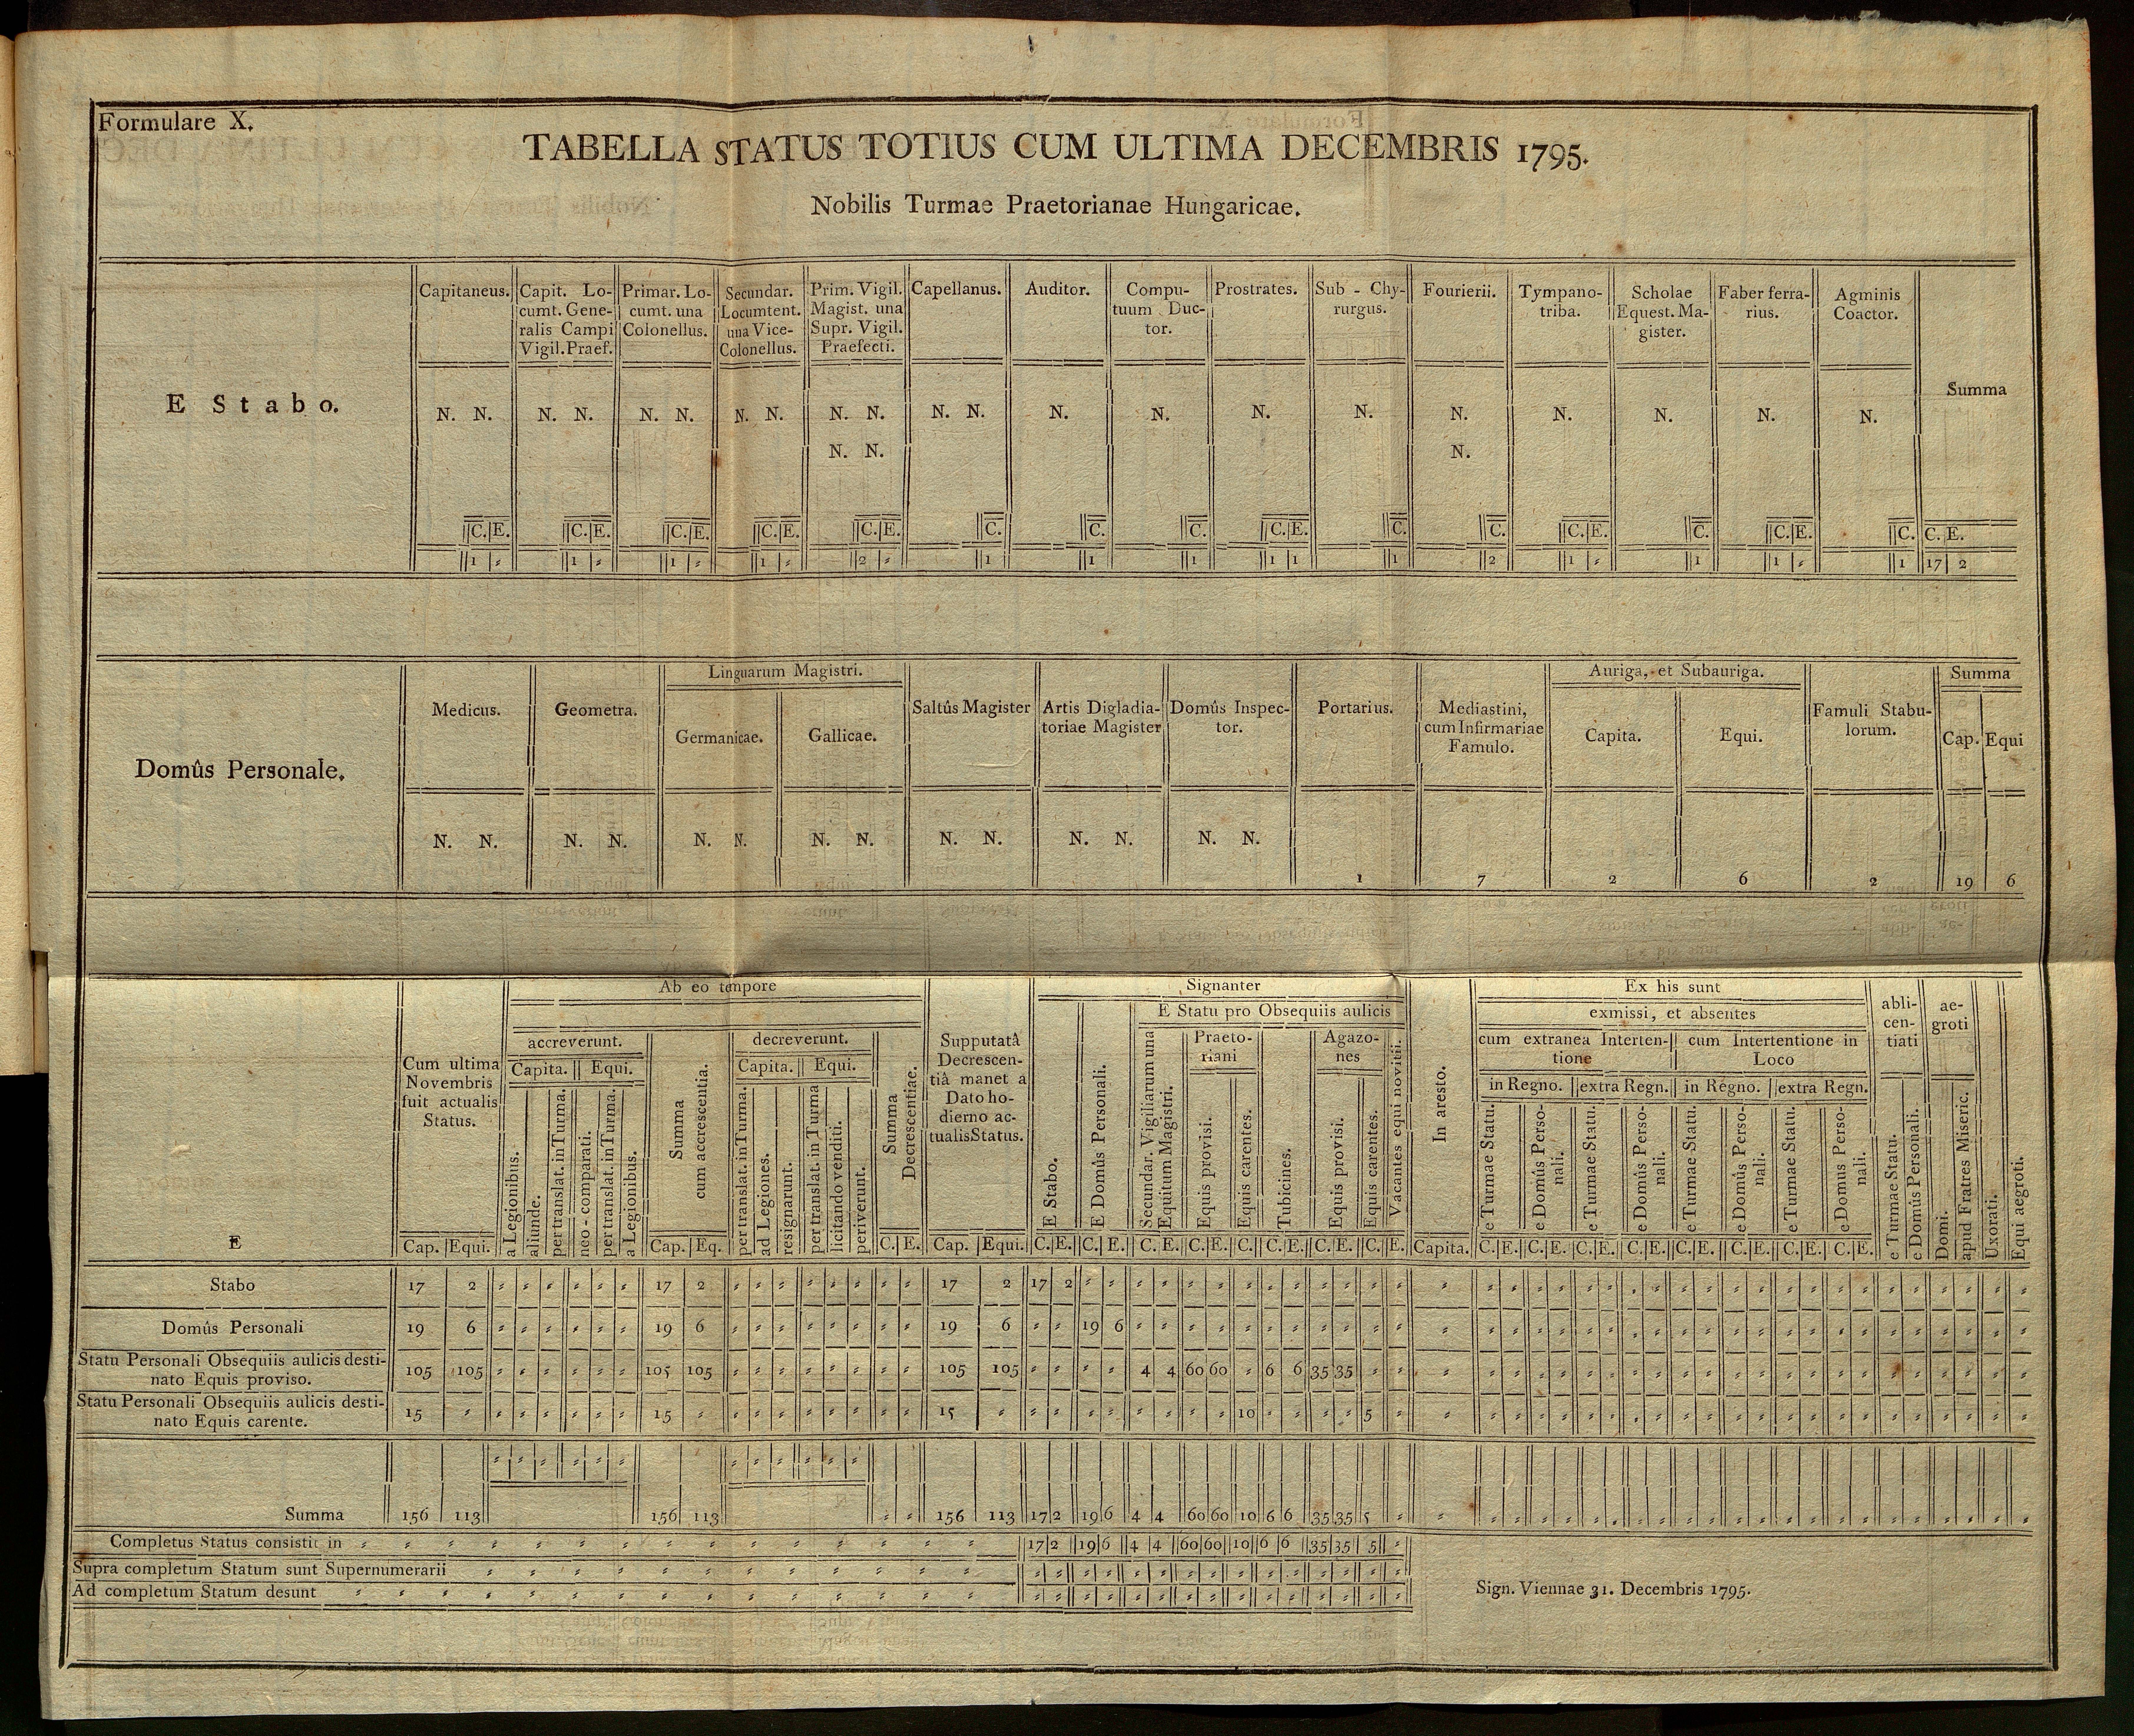 Formulare X.
TABELLA STATUS TOTIUS CUM ULTIMA DECEMBRIS 1795.
Nobilis Turmae Praetorianae Hungaricae.
E Stabo.
Capitaneus.
Capit. Lo-
cumt. Gene-
ralis Campi
Vigil. Praef.
Primar. Lo-
cumt. una
Colonellus.
Secundar.
Locumtent.
una Vice-
Colonellus.
Prim. Vigil.
Magist. una
Supr. Vigil.
Praefecti.
Capellanus.
Auditor.
Compu-
tuum Duc-
tor.
Prostrates.
Sub - Chy-
rurgus.
Fourierii.
Tympano-
triba.
Scholae
Equest. Ma-
gister.
Faber ferra-
rius.
Agminis
Coactor.
Summa
N. N. N. N. N. N. N. N. N. N. N. N. N. N. N. N. N. N. N. N. N.
N. N. N.
C. E. C. E. C. E. C. E. C. E. C. C. C. C. E. C. C. C. E. C. C. E. C. C. E.
1 〃 1 〃 1 〃 1 〃 2 〃 1 1 1 1 1 1 2 1 〃 1 1 〃 1 17 2
Domûs Personale.
Medicus.
Geometra.
Linguarum Magistri.
Germanicae.
Gallicae.
Saltûs Magister
Artis Digladia-
toriae Magister
Domûs Inspec-
tor.
Portarius.
Mediastini,
cum Infirmariae
Famulo.
Auriga, et Subauriga.
Capita.
Equi.
Famuli Stabu-
lorum.
Summa
Cap. Equi
N. N. N. N. N. N. N. N. N. N. N. N. N. N.
1 7 2 6 2 19 6
E
Cum ultima
Novembris
fuit actualis
Status.
Cap. Equi.
Ab eo tempore
accreverunt.
Capita. Equi.
a Legionibus.
aliunde.
per translat. in Turma.
neo - comparati.
per translat. in Turma.
a Legionibus.
Summa
cum accrescentia.
Cap. Eq.
decreverunt.
Capita. Equi.
per translat. in Turma.
ad Legiones.
resignarunt.
per translat. in Turma
licitando venditi.
periverunt.
Summa
Decrescentiae.
C. E.
Supputatâ
Decrescen-
tiâ manet a
Dato ho-
dierno ac-
tualis Status.
Cap. Equi.
Signanter
E Stabo.
C. E.
E Domûs Personali.
C. E.
E Statu pro Obsequiis aulicis
Secundar. Vigiliarum una
Equitum Magistri.
C. E.
Praeto-
riani
Equis provisi.
C. E.
Equis carentes.
C.
Tubicines.
C. E.
Agazo-
nes
Equis provisi.
C. E.
Equis carentes.
C.
Vacantes equi novitii.
E.
In aresto.
Capita.
Ex his sunt
exmissi, et absentes
cum extranea Interten-
tione
cum Intertentione in
Loco
in Regno. extra Regn. in Regno. extra Regn.
e Turmae Statu.
e Domûs Perso-
nali.
e Turmae Statu.
e Domûs Perso-
nali.
e Turmae Statu.
e Domûs Perso-
nali.
e Turmae Statu.
e Domus Perso-
nali.
C. E. C. E. C. E. C. E. C. E. C. E. C. E. C. E.
abli-
cen-
tiati
e Turmae Statu.
e Domûs Personali.
ae-
groti
Domi.
apud Fratres Miseric.
Uxorati.
Equi aegroti.
Stabo 17 2 17 2 17 2 17 2
Domûs Personali 19 6 19 6 19 6 19 6
Statu Personali Obsequiis aulicis desti-
nato Equis proviso. 105 105 105 105 105 105 4 4 60 60 6 6 35 35
Statu Personali Obsequiis aulicis desti-
nato Equis carente. 15 15 15 10 5
Summa 156 113 156 113 156 113 17 2 19 6 4 4 60 60 10 6 6 35 35 5
Completus Status consistit in 17 2 19 6 4 4 60 60 10 6 6 35 35 5
Supra completum Statum sunt Supernumerarii
Ad completum Statum desunt
Sign. Viennae 31. Decembris 1795.